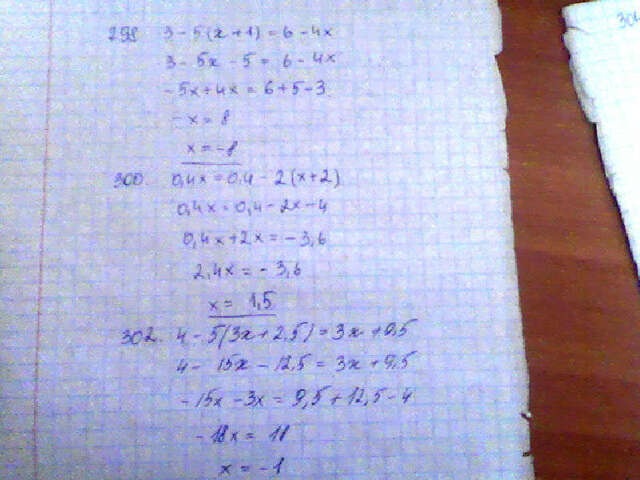 299 3 - 5(x + 1) = 6 - 4x
3 - 5x - 5 = 6 - 4x
-5x + 4x = 6 + 5 - 3
-x = 8
x = -8
300. 0,4x = 0,4 - 2(x + 2)
0,4x = 0,4 - 2x - 4
0,4x + 2x = -3,6
2,4x = -3,6
x = 1,5
302. 4 - 5(3x + 2,5) = 3x + 9,5
4 - 15x - 12,5 = 3x + 9,5
-15x - 3x = 9,5 + 12,5 - 4
-18x = 18
x = -1